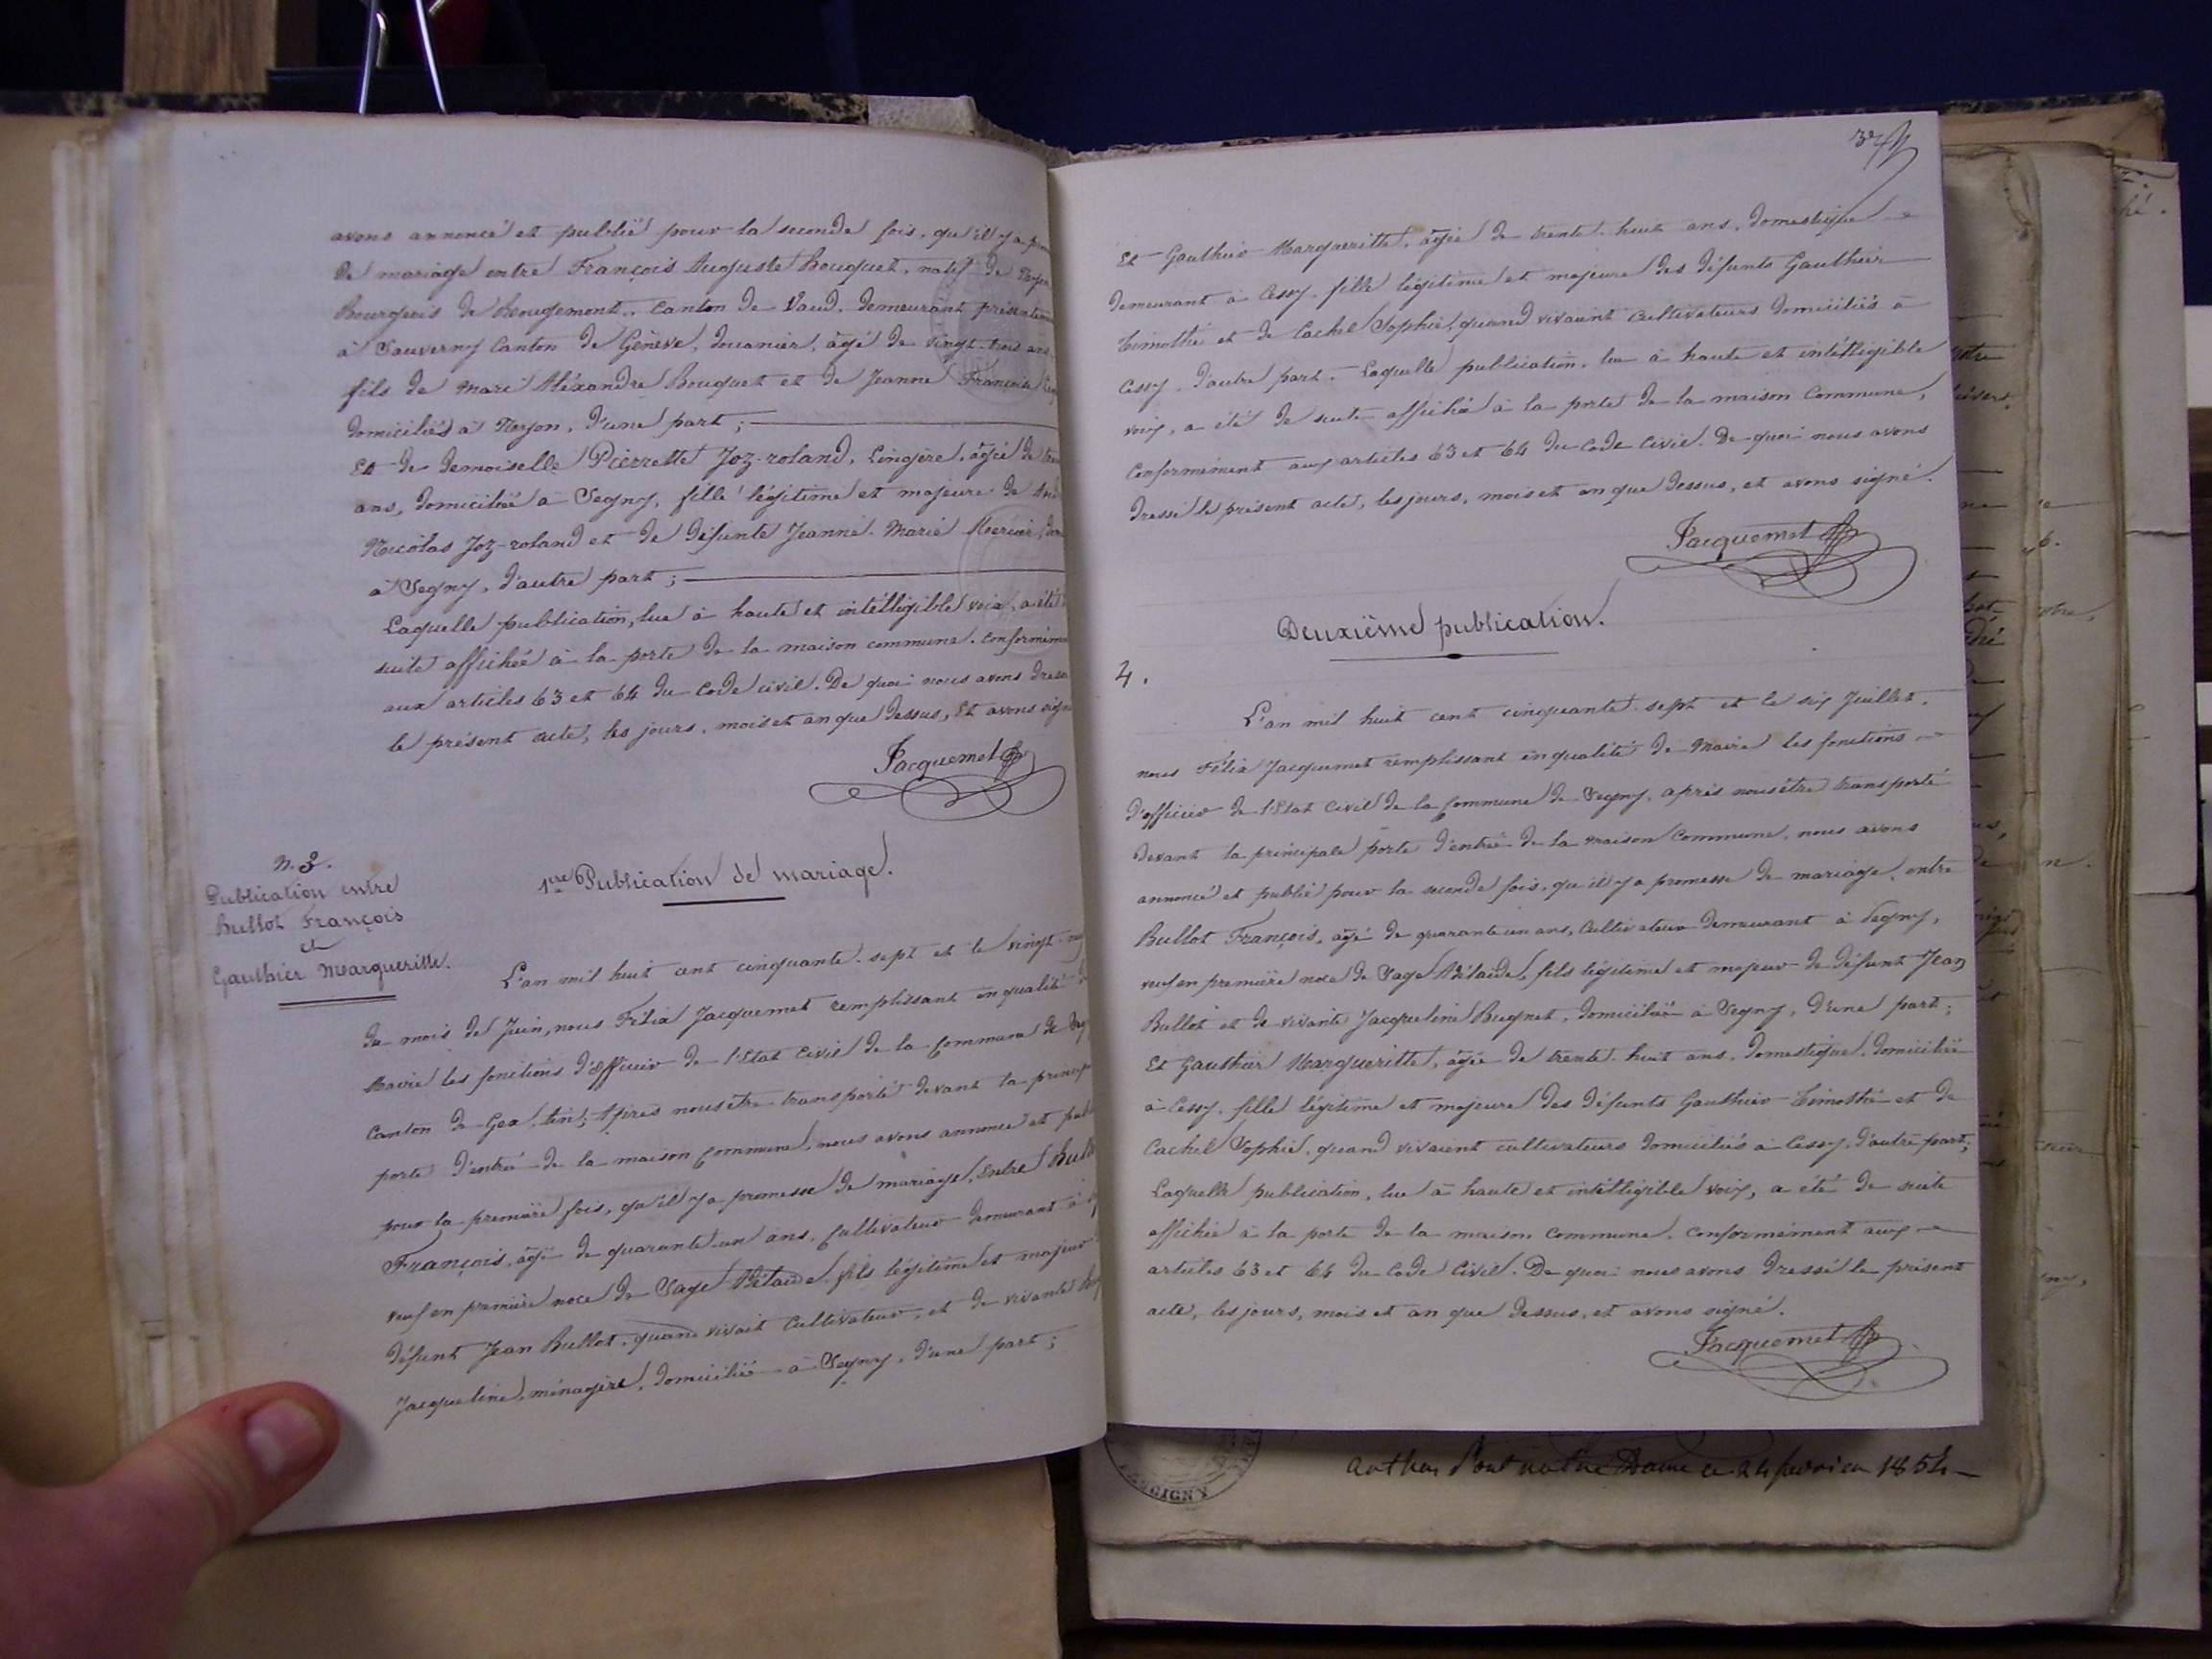 avons annoncé et publié pour la seconde fois, qu'il y a
de mariage entre François Auguste Bouquet, natif de
Bourgeois de Rougemont, Canton de Vaud, demeurant
à Sauverny Canton de Genève, douanier, âgé de vingt-trois ans
fils de Marc Aléxandre Bouquet et de Jeanne Françoise
domiciliés à Noyon, d'une part;
Et de demoiselle Pierrette Joz-roland, Lingère, âgée de
ans, domiciliée à Segny, fille légitime et majeure de
Nicolas Joz-roland et de défunte Jeanne-Marie Mercier,
à Segny, d'autre part;
Laquelle publication, lue à haute et intélligible voix, a été
suite affichée à la porte de la maison commune. Conformém
aux articles 63 et 64 du Code civil. De quoi nous avons
le présent acte, les jours, mois et an que dessus, Et avons
Jacquemet
N. 3.
Publication entre
Bullot François
et
Gauthier Margueritte.
1ère Publication de mariage.
L'an mil huit cent cinquante-sept et le vingt-
du mois de Juin, nous Félix Jacquemet remplissant en qualité
Maire les fonctions d'officier de l'Etat Civil de la commune de
Canton de Gex, Ain; Après nous être transporté devant la
porte d'entrée de la maison commune, nous avons annoncé et
pour la première fois, qu'il y a promesse de mariage, entre
François, âgé de quarante-un ans, Cultivateur demeurant à
veuf en première noce de Sage Adélaïde, fils légitime et majeur
défunt Jean Bullot, quand vivait Cultivateur, et de vivante
Jacqueline, ménagère, domiciliée à Segny, d'une part;
Et Gauthier Margueritte, âgée de trente-huit ans, domestique
demeurant à Cessy, fille légitime et majeure des défunts Gauthier
Timothé et de Cachel Sophie, quand vivaient cultivateurs domiciliés à
Cessy, d'autre part. Laquelle publication, lue à haute et intélligible
voix, a été de suite affichée à la porte de la maison Commune,
Conformément aux articles 63 et 64 du Code Civil. De quoi nous avons
dressé le présent acte, les jours, mois et an que dessus, et avons signé.
Jacquemet
Deuxième publication.
4.
L'an mil huit cent cinquante-sept et le six Juillet,
nous Félix Jacquemet remplissant en qualité de Maire les fonctions
d'officier de l'Etat Civil de la Commune de Segny, après nous être transporté
devant la principale porte d'entrée de la maison Commune, nous avons
annoncé et publié pour la seconde fois, qu'il y a promesse de mariage, entre
Bullot François, âgé de quarante un ans, Cultivateur demeurant à Segny,
veuf en première noce de Sage Adélaïde, fils légitime et majeur de défunt Jean
Bullot et de vivante Jacqueline Bugnet, domiciliée à Segny, d'une part;
Et Gauthier Margueritte, âgée de trente-huit ans, domestique, domiciliée
à Cessy, fille légitime et majeure des défunts Gauthier Timothé et de
Cachel Sophie, quand vivaient cultivateurs domiciliés à Cessy, d'autre part;
Laquelle publication, lue à haute et intélligible voix, a été de suite
affichée à la porte de la maison Commune, conformément aux
articles 63 et 64 du Code Civil. De quoi nous avons dressé le présent
acte, les jours, mois et an que dessus, et avons signé.
Jacquemet
1854